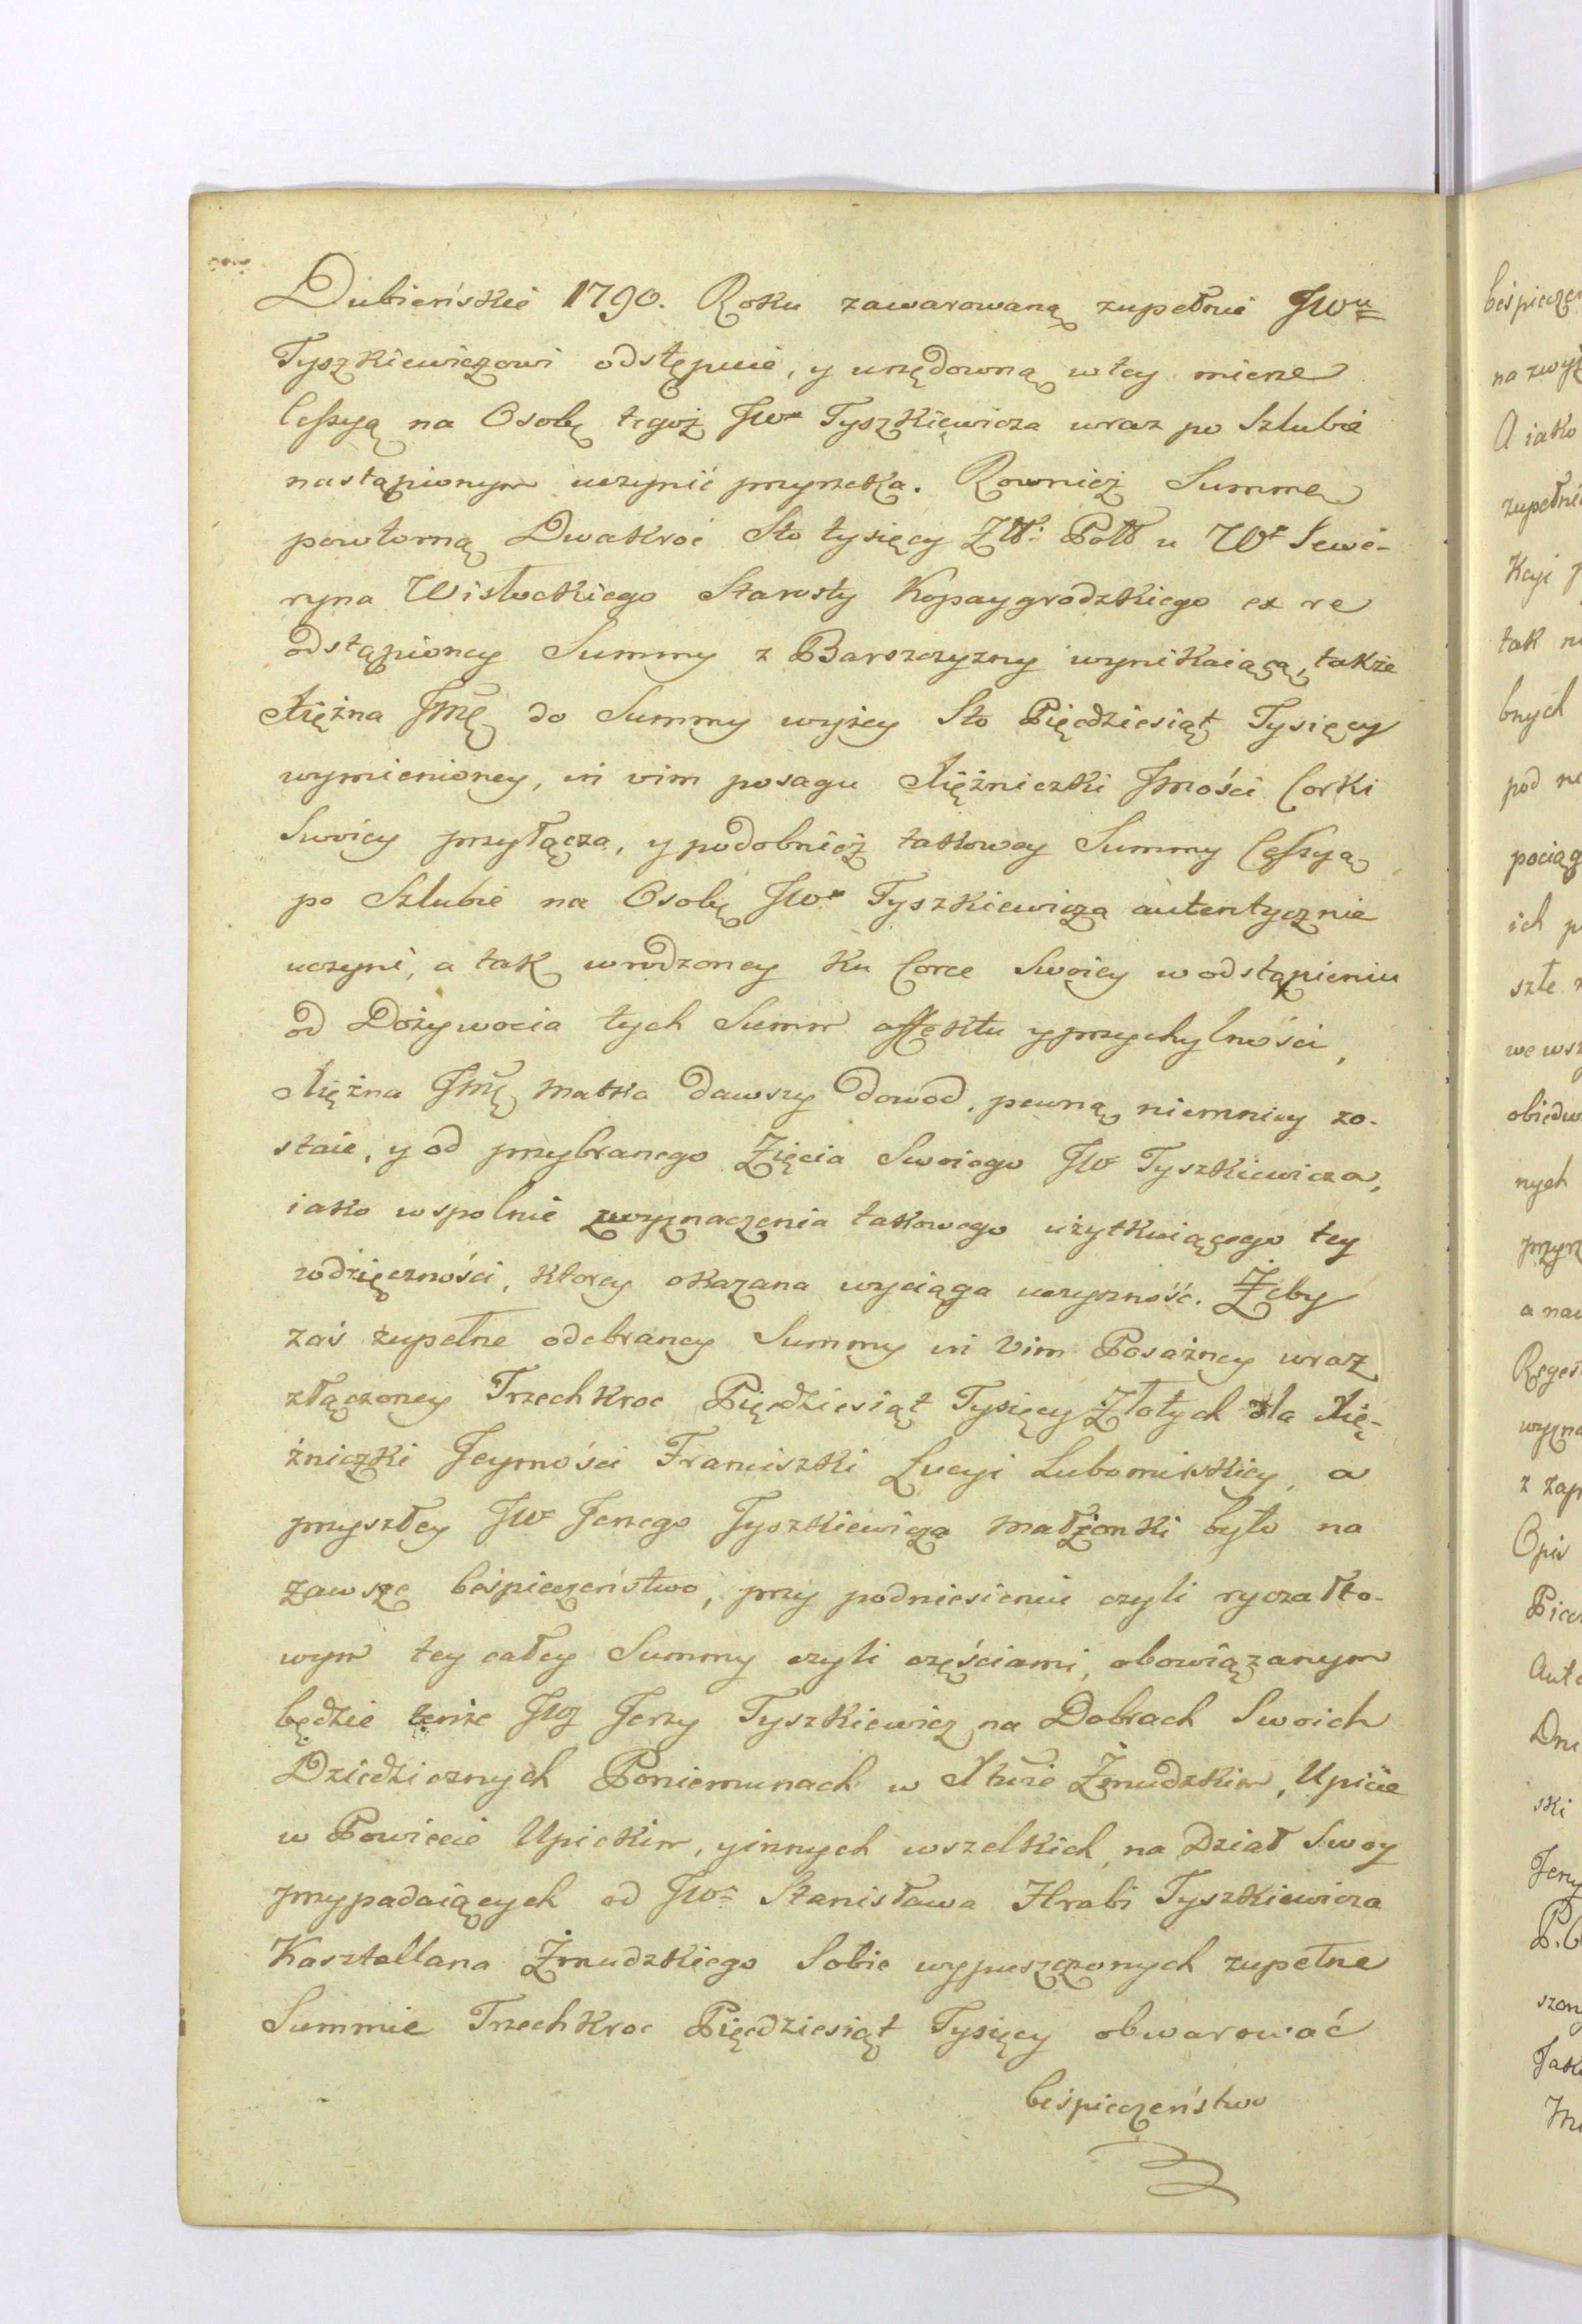 Dubieńskie 1790. Roku zawarowaną zupełnie JWu
Tyszkiewiczowi odstępuie, y urzędowną w tey mierze
Cessyą na Osobę tegoż JWo Tyszkiewicza wraz po Szlubie
nastąpionym uczynić przyrzeka. Rowniez Summę
powtorną Dwakroć Sto tysięcy Złł: Poll u Wo Sewe-
ryna Wisłockiego Starosty Kopaygrodzkiego ex re
odstąpioney Summy z Barszczyzny wynikaiącą, także
Xiężna Jmę do Summy wyżey Sto Pięcdziesiąt Tysięcy
wymienioney, in vim posagu Xiężniczki Jmości Corki
Swoiey przyłącza, y podobnież takowey Summy Cessyą
po Szlubie na Osobę JWo Tyszkiewicza autentycznie
uczyni, a tak wrodzoney ku Corce Swoiey w odstąpieniu
od Dożywocia tych Summ affektu y przychylności,
Xiężna Jmę Matka dawszy dowod, pewną niemniey zo-
staie, y od przybranego Zięcia Swoiego JWo Tyszkiewicza,
iako wspolnie z wyznaczenia takowego użytkuiącego tey
wdzięczności, ktorey okazana wyciąga uczynność. Żeby
zaś zupełne odebraney Summy in Vim Posażney wraz
złączoney Trzechkroc Pięcdziesiąt Tysięcy Złotych dla Xię-
żniczki Jeymości Franciszki Lucyi Lubomirskiey, a
przyszłey JWo Jerzego Tyszkiewicza Małżonki było na
zawsze beśpieczeństwo, przy podniesieniu czyli ryczałto-
wym tey całey Summy czyli częściami, obowiązanym
będzie tenże JWż Jerzy Tyszkiewicz na Dobrach Swoich
Dziedzicznych Poniemunach w Xtwie Żmudzkim, Upicie
w Powiecie Upickim, y innych wszelkich, na Dział Swoy
przypadaiących od JWo Stanisława Hrabi Tyszkiewicza
Kasztellana Żmudzkiego Sobie wypuszczonych zupełne
Summie Trzechkroc Pięcdziesiąt Tysięcy obwarować
beśpieczeństwo
beśpiecze
na zwy
A iako
zupełni
tak
bnych
pod
pociąg
ich
szłe
we wsz
nych
przyrz
a
wyzna
z
Opis
ski
Jerzy